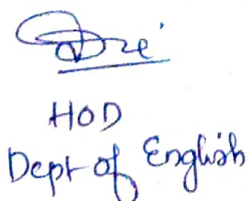 HOD
Dept of English